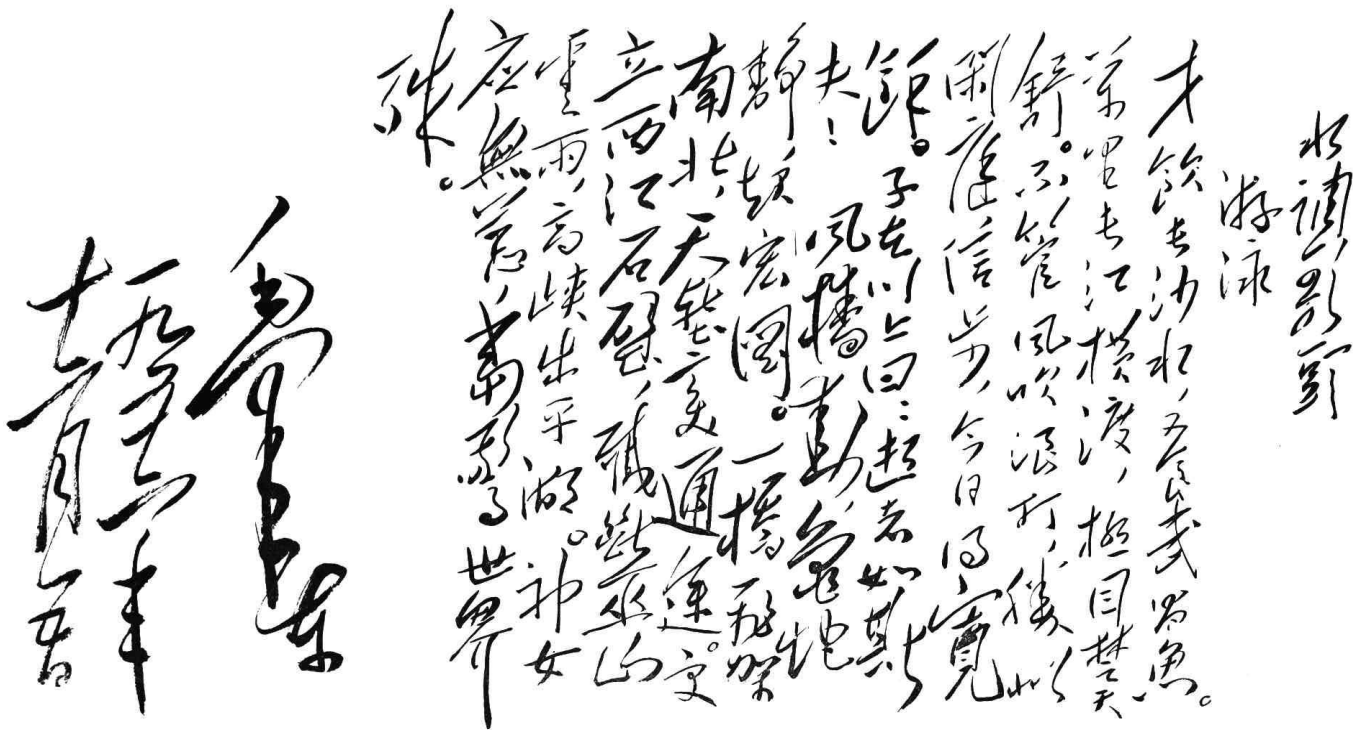 水調歌頭
游泳
才飲長沙水,又食武昌魚。
萬里長江橫渡,極目楚天
舒。不管風吹浪打,勝似
閑庭信步,今日得寬
餘。子在川上曰:逝者如斯
夫!風檣動,龜蛇
靜,起宏圖。一橋飛架
南北,天塹變通途。更
立西江石壁,截斷巫山
雲雨,高峽出平湖。神女
應無恙,當驚世界
殊。
毛澤東
一九五六年
十二月五日